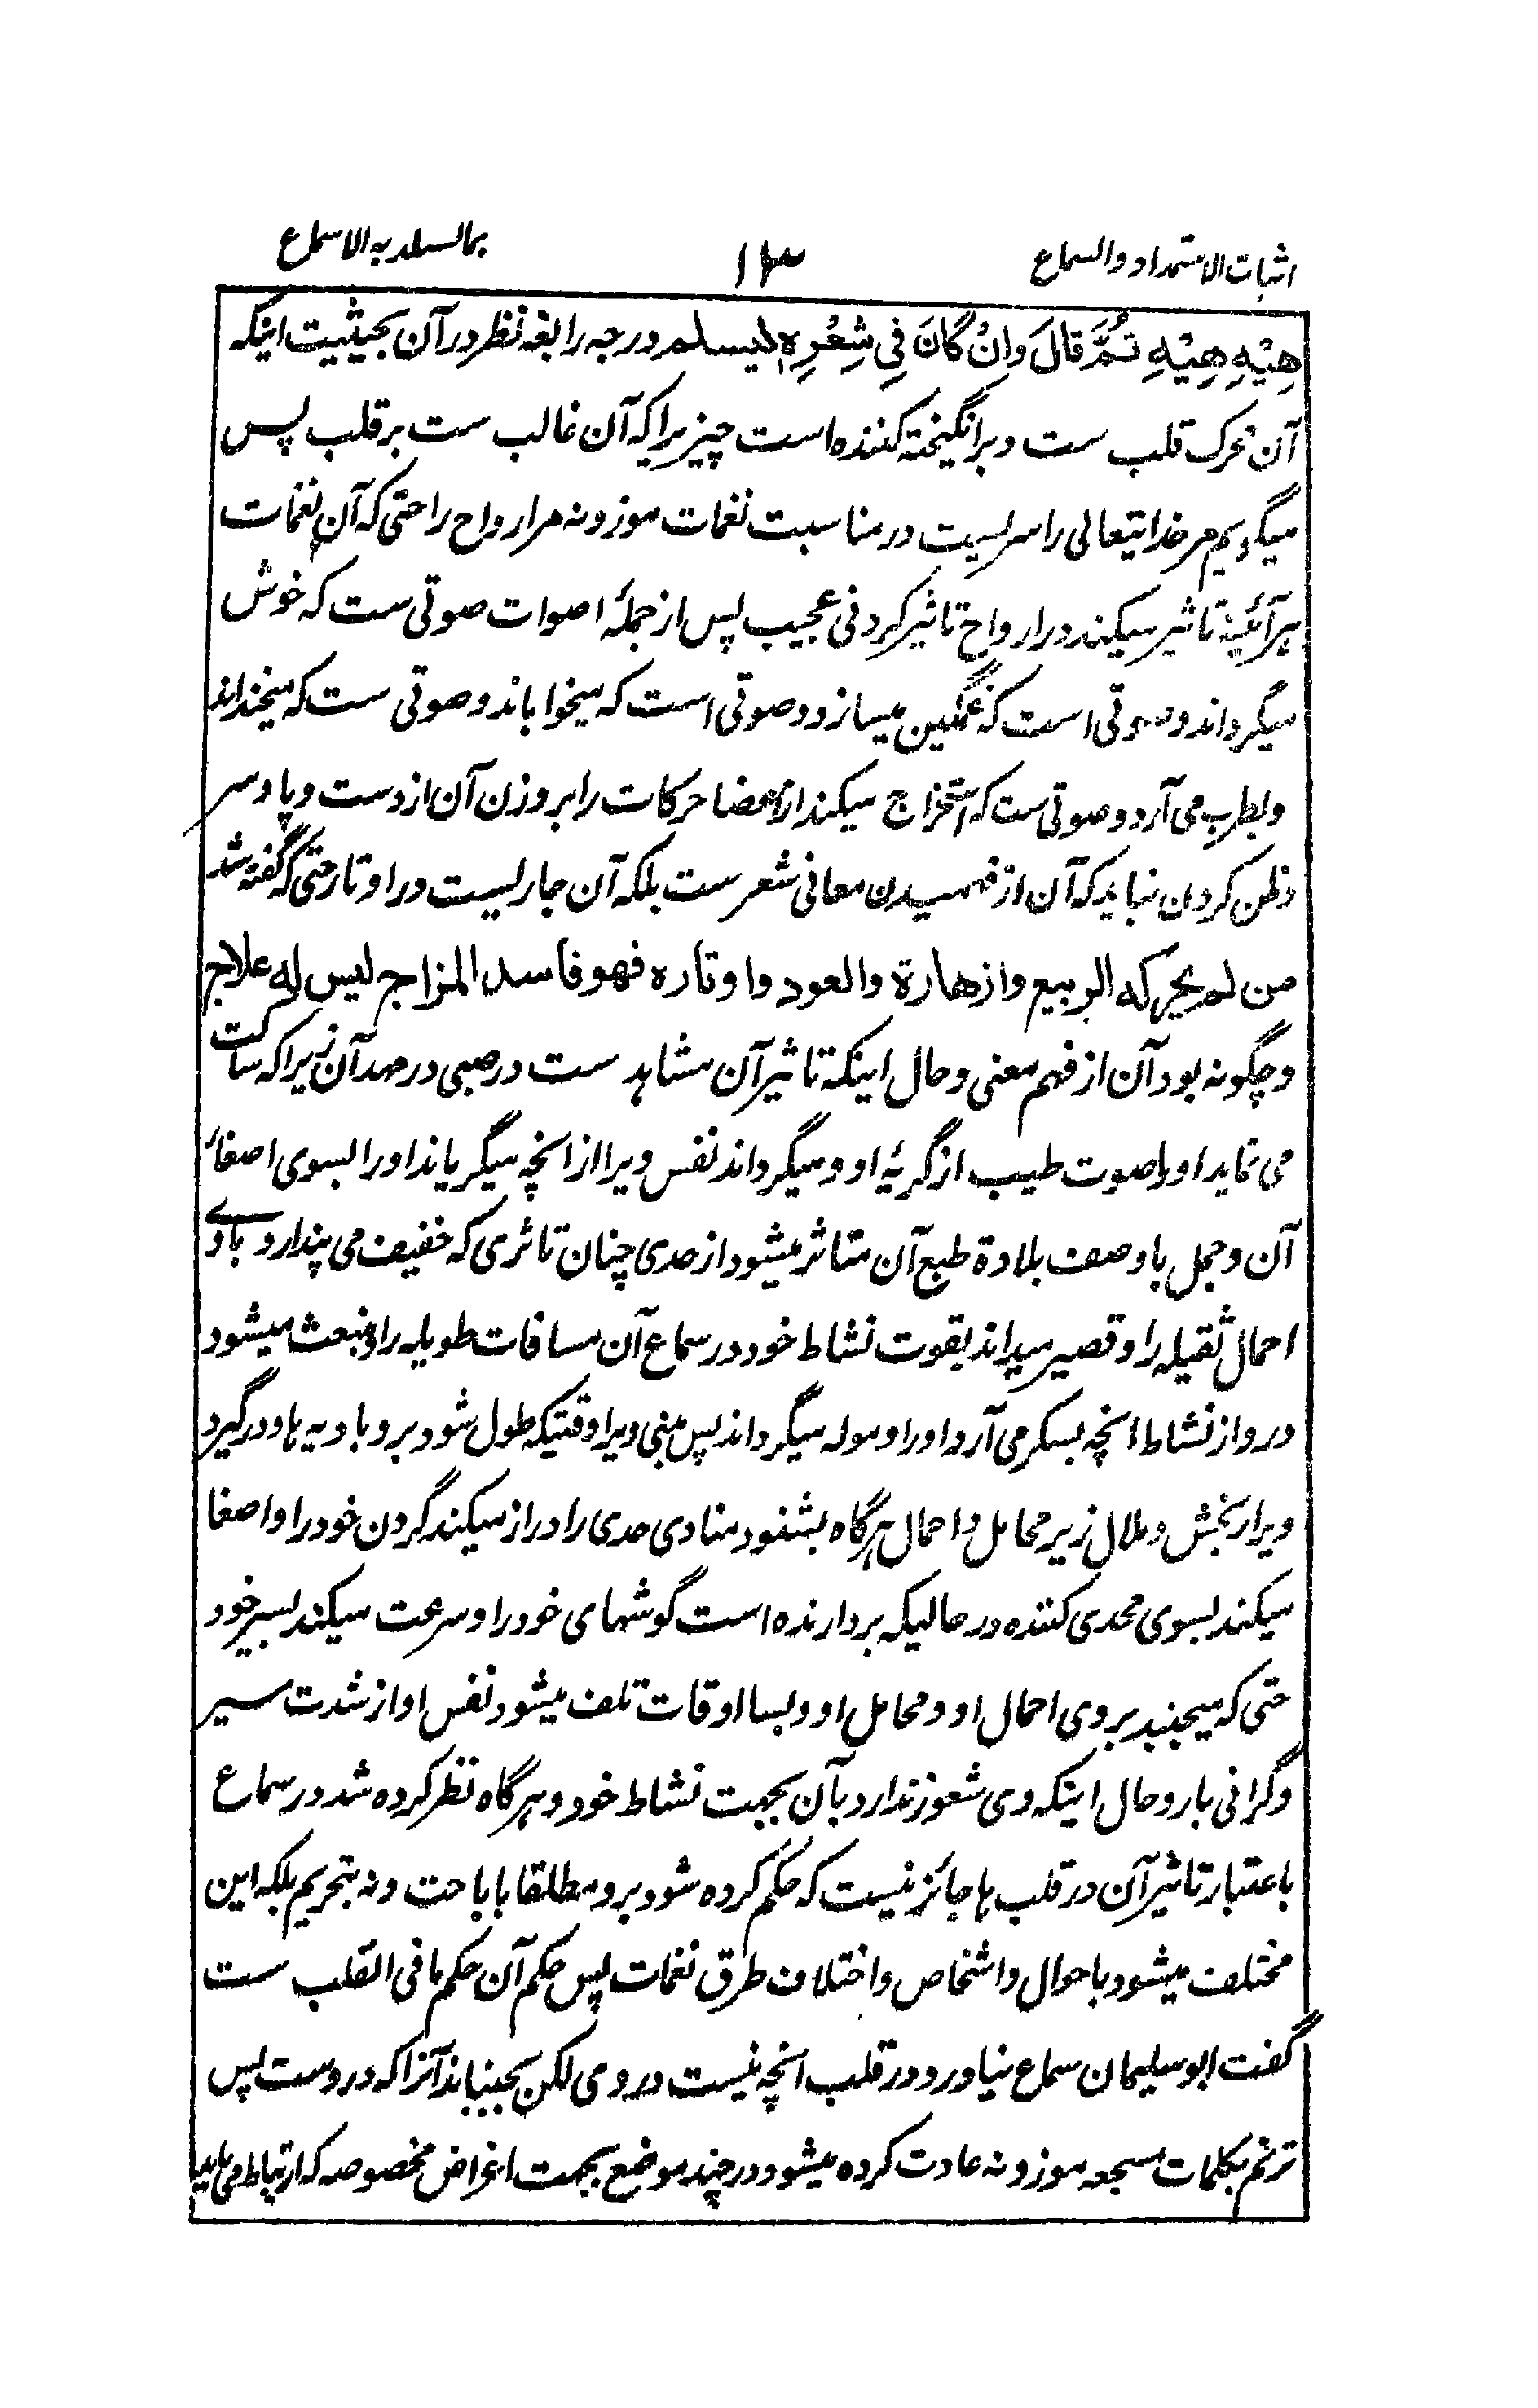 اثبات الاستمداد والسماع
۱۳
بمالسلد به الاسماع
هِيْهِ هِيْهِ ثُمَّ قَالَ وَاِنْ كَانَ فِي شِعْرِهِ ليسلم درجه رابعه نظر در آن بحیثیت اینکه
آن محرک قلب ست و برانگیخته کننده است چیزیرا که آن غالب ست بر قلب پس
میگویم مر خدایتعالی را سریست در مناسبت نغمات موزونه مر ارواح را حتی که آن نغمات
هر آئینه تاثیر میکند در ارواح تاثیر کردنی عجیب پس از جملهٔ اصوات صوتی ست که خوش
میگرداند و صوتی است که غمگین میسازد و صوتی است که میخواباند و صوتی ست که میخنداند
و بطرب می آرد و صوتی ست که استخراج میکند از اعضا حرکات را بر وزن آن از دست و پا و سر
و ظن کردن نباید که آن از فهمیدن معانی شعر ست بلکه آن جاریست در اوتار حتی که گفته شد
من لم یحرکه الربیع وازهاره والعود واوتاره فهو فاسد المزاج لیس له علاج
و چگونه بود آن از فهم معنی و حال اینکه تاثیر آن مشاهد ست در صبی در مهد آن زیرا که ساکت
می نماید او را صوت طیب از گریهٔ او و میگرداند نفس ویرا از انچه میگریاند او را بسوی اصغاء
آن و جمل با وصف بلادة طبع آن متاثر میشود از حدی چنان تاثری که خفیف می پندارد باوے
احمال ثقیله را و قصیر میداند بقوت نشاط خود در سماع آن مسافات طویله را و منبعث میشود
در و از نشاط انچه بسکر می آرد او را و موله میگرداند پس بینی ویرا وقتیکه طول شود برو بادیه ها و درگیرد
ویرا رنجش و ملال زیر محامل و احمال هرگاه بشنود منادی حدی را دراز میکند گردن خود را و اصغا
میکند بسوی محدی کننده در حالیکه بردارنده است گوشهای خود را و سرعت میکند بسیر خود
حتی که میجنبد بروی احمال او و محامل او و بسا اوقات تلف میشود نفس او از شدت سیر
و گرانی بار و حال اینکه وی شعور ندارد بآن بجهت نشاط خود و هرگاه نظر کرده شد در سماع
باعتبار تاثیر آن در قلب ها جائز نیست که حکم کرده شود برو مطلقا باباحت و نه بتحریم بلکه این
مختلف میشود باحوال و اشخاص و اختلاف طرق نغمات پس حکم آن حکم ما فی القلب ست
گفت ابو سلیمان سماع نیاورد در قلب انچه نیست در وی لکن بجنباند آنرا که دروست پس
ترنم بکلمات مسجعه موزونه عادت کرده میشود در چند موضع بجهت اغراض مخصوصه که ارتباط می یابد